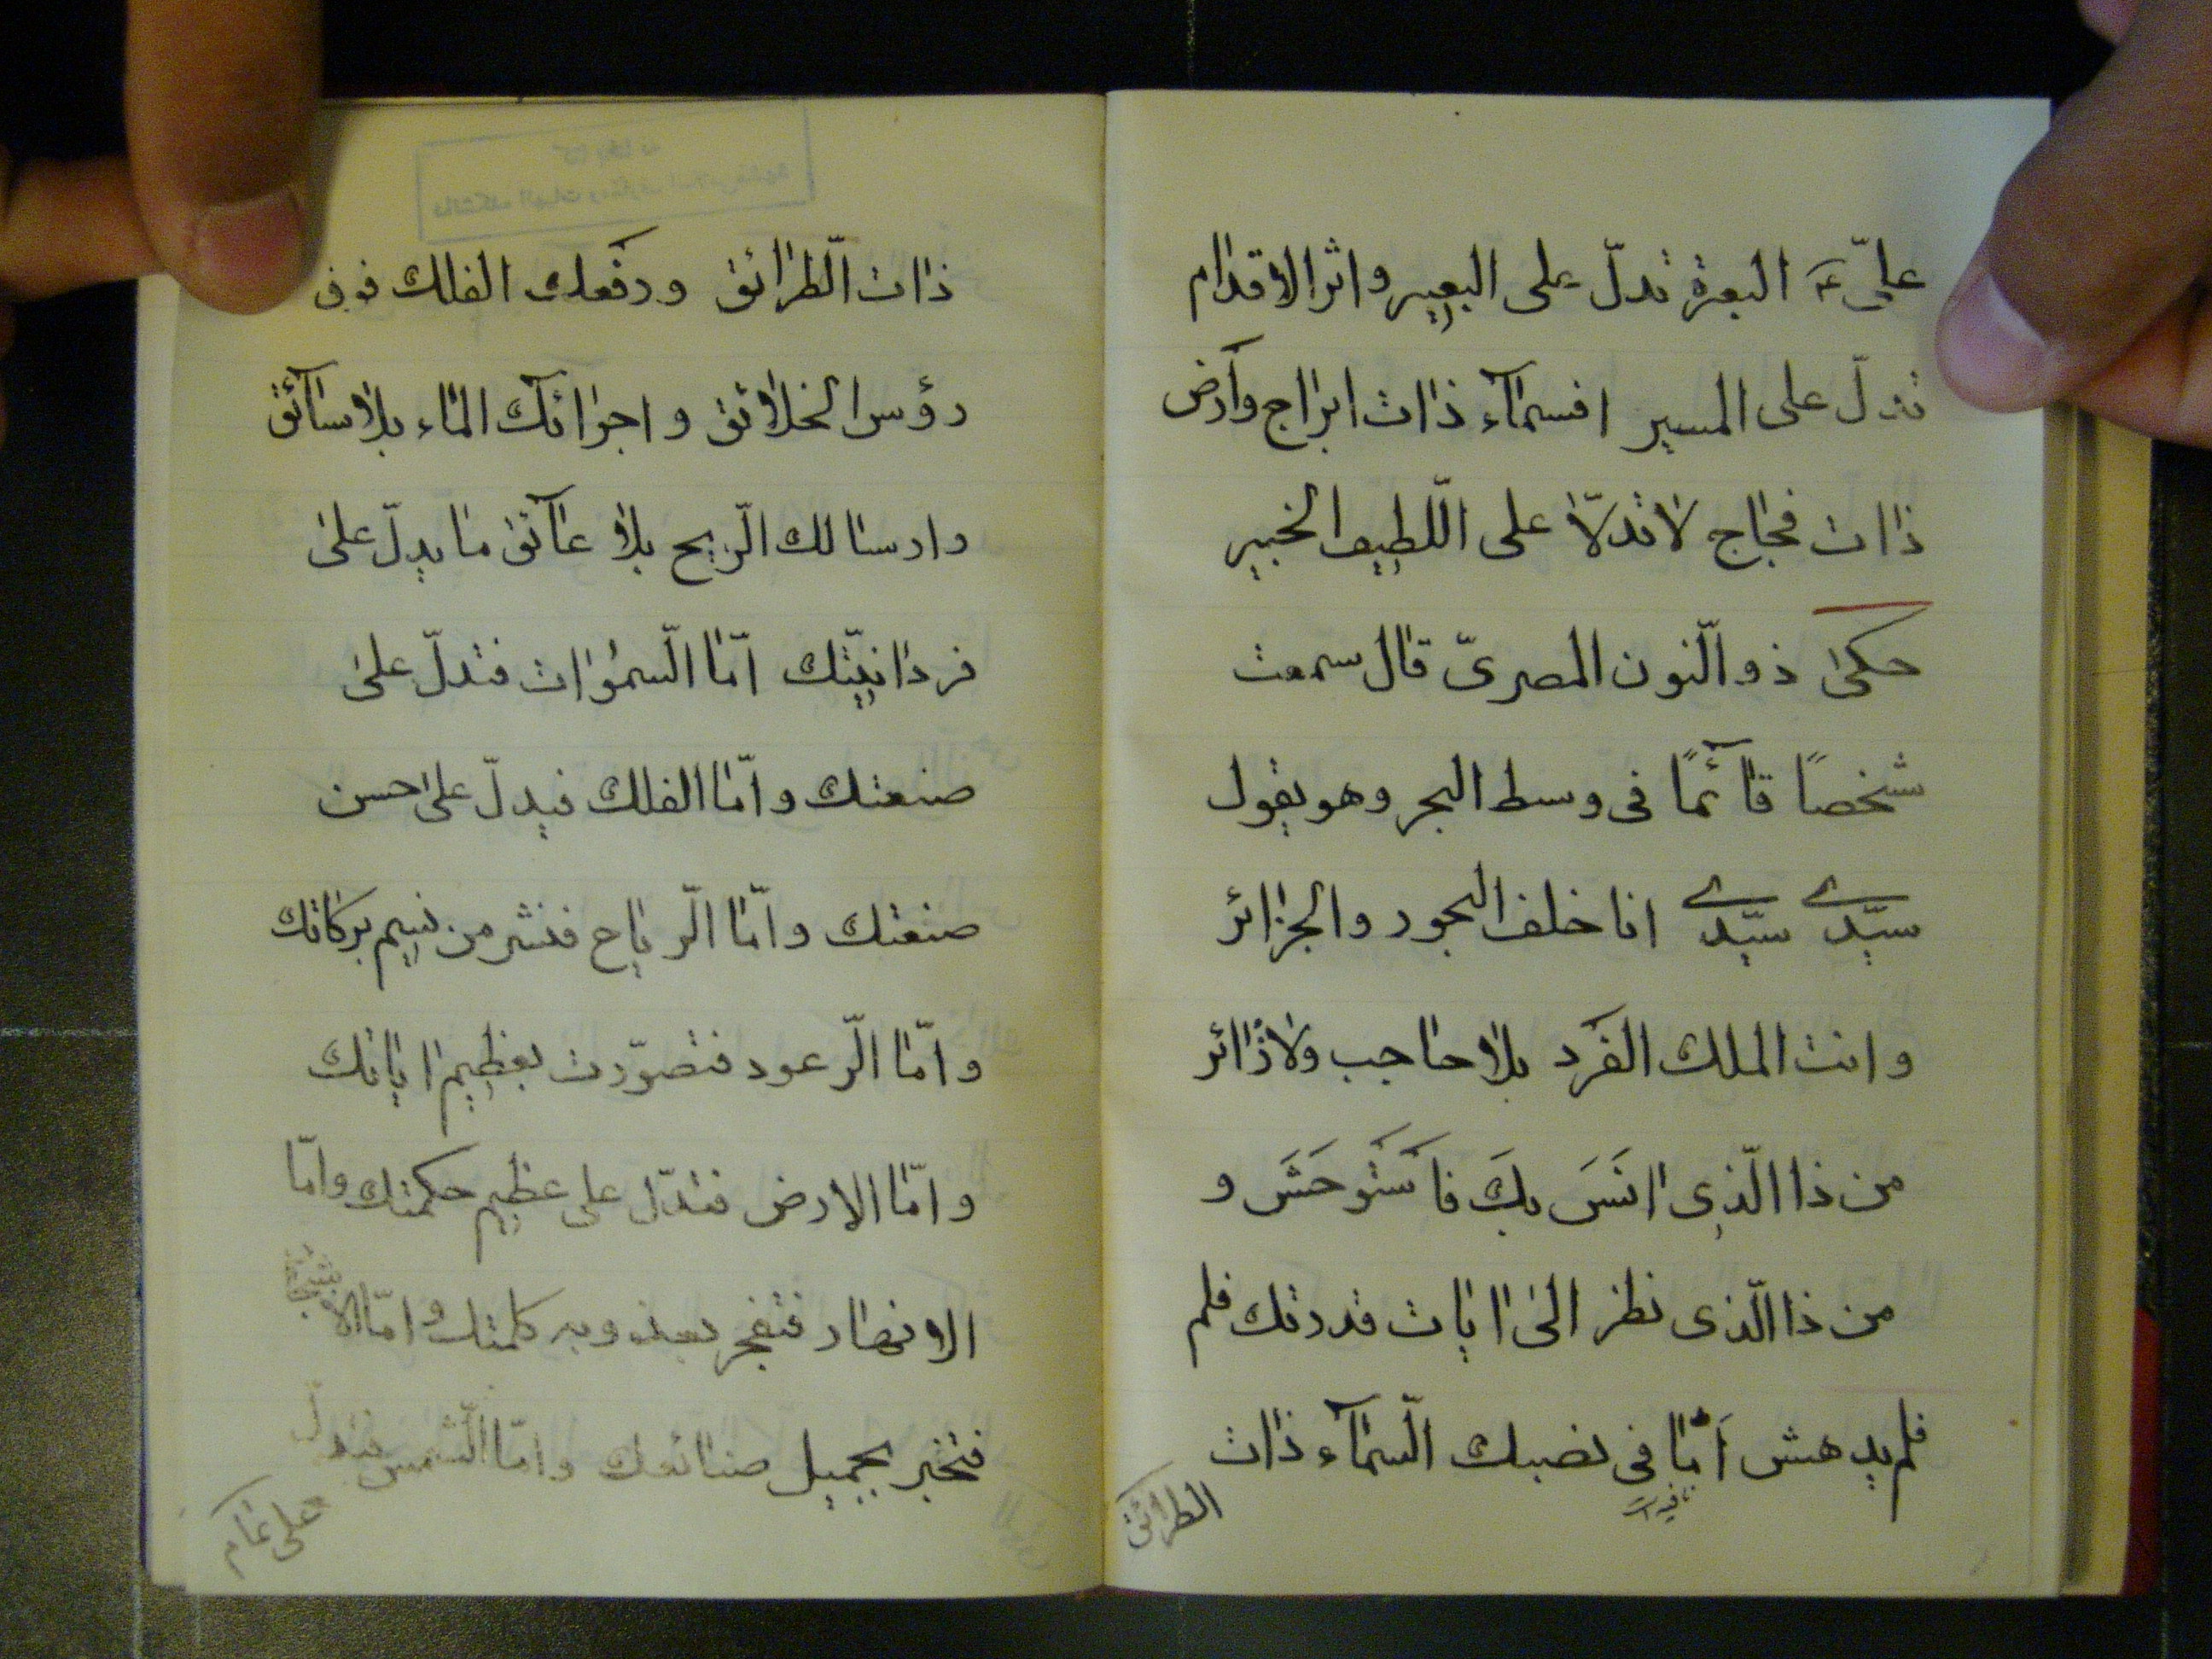 علىّ عَ البعرة تدلّ على البعير واثر الاقدام
تدلّ على المسير افسمآء ذات ابراج وارض
ذات فجاج لا تدلّا على اللّطيف الخبير
حكى ذو النّون المصرىّ قال سمعت
شخصًا قآئمًا فى وسط البحر وهو يقول
سيّدے سيّدے انا خلف البحور والجزائر
وانت الملك الفَرد بلا حاجب ولا زائر
من ذا الّذى انَسَ بِكَ فاَستَوحَشَ و
من ذا الّذى نظر الى ايات قدرتك فلم
فلم يدهش اَمَا فى نصبك السّمآء ذات
الطرائق
ذات الطّرائق ورفَعك الفلك فوق
رؤس الخلائق واجرائك الماء بلا سآئق
وارسالك الرّيح بلا عآئق ما يدلّ على
فردانيّتك امّا السّموات فتدلّ على
صنعتك وامّا الفلك فيدلّ على حسن
صنعتك وامّا الرّياح فنشر من نسيم بركاتك
وامّا الرّعود فتصوّرت بعظيم اياتك
وامّا الارض فتدّل على عظيم حكمتك وامّا
الانهار فتفجر بعذوبه كلمتك و امّا
فتخبر بجميل صنائعك وامّا الشّمس فتدلّ
على تمام